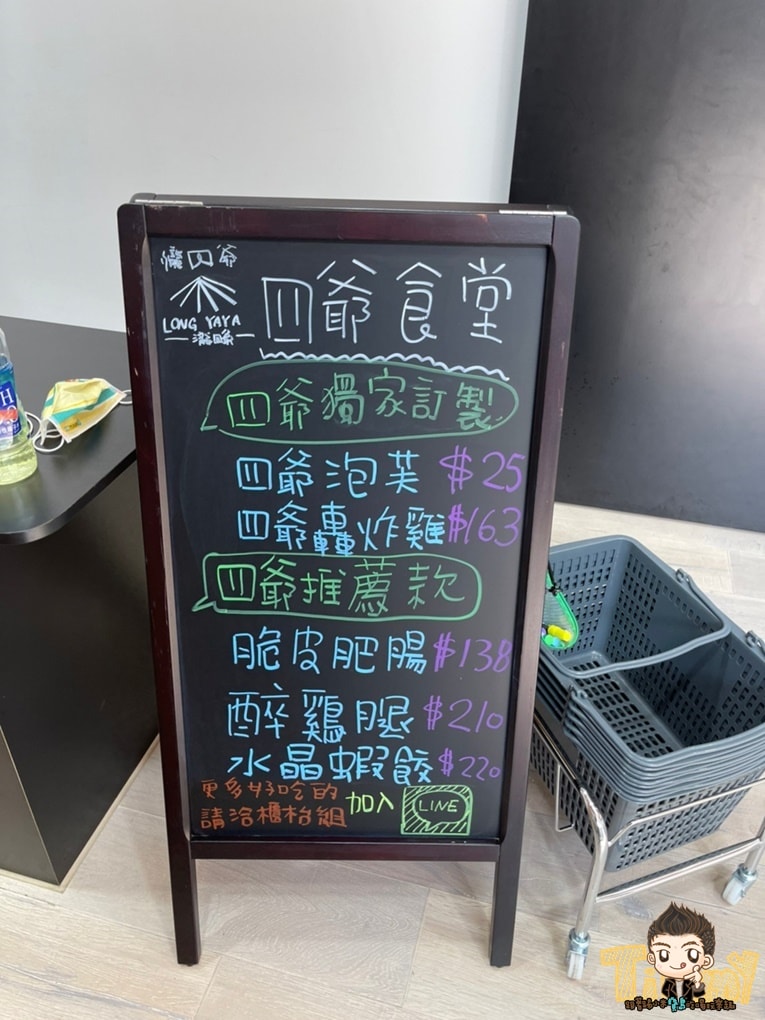 懶四爺
LONG YAYA
四爺食堂
四爺獨家訂製
四爺泡芙 $25
四爺轟炸雞 $163
四爺推薦款
脆皮肥腸 $138
醉鷄腿 $210
水晶蝦餃 $220
更多好吃的
請洽櫃枱組
加入 LINE